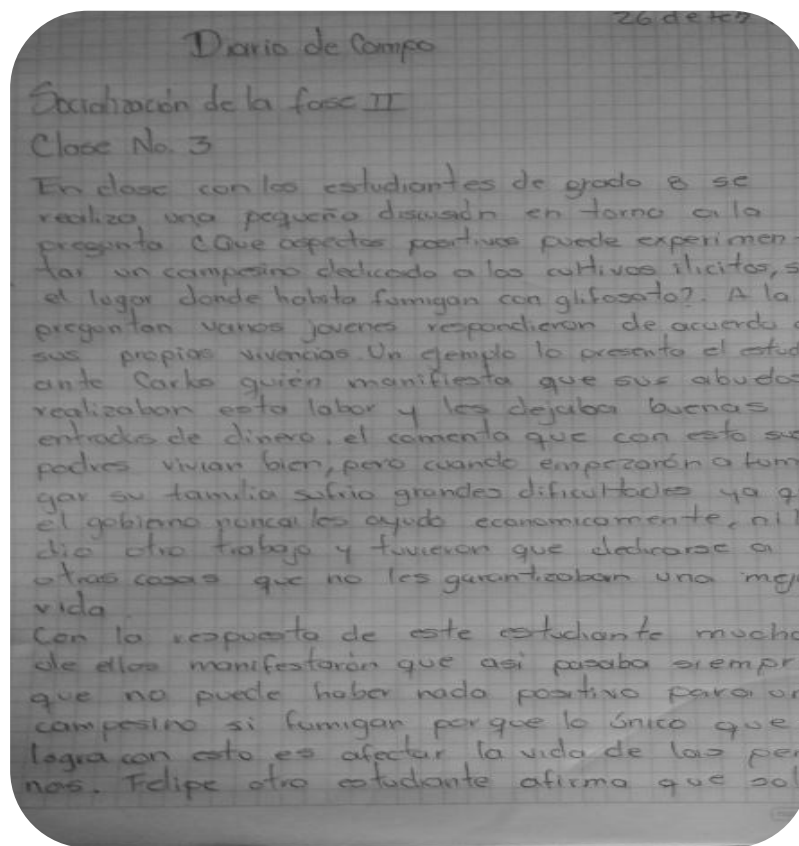 26 de feb
Diario de Campo
Socialización de la fase II
Clase No. 3
En clase con los estudiantes de grado 8 se
realizo una pequeña discusión en torno a la
pregunta ¿Que aspectos positivos puede experimen
tar un campesino dedicado a los cultivos ilicitos, s
el lugar donde habita fumigan con glifosato?. A la
pregunton varios jovenes respondieron de acuerdo a
sus propias vivencias. Un ejemplo lo presenta el estud
ante Carlos quién manifiesta que sus abuelos
realizaban esta labor y les dejaba buenas
entradas de dinero, el comenta que con esto sus
padres vivian bien, pero cuando empezarón a fum
gar su familia sufrio grandes dificultades ya q
el gobierno nunca les ayudo economicamente, ni l
dio otro trabajo y tuvieron que dedicarse a
otras cosas que no les garantizaban una mej
vida.
Con la respuesta de este estudiante mucho
de ellos manifestarón que asi pasaba siempr
que no puede haber nada positivo para un
campesino si fumigan porque lo único que
logra con esto es afectar la vida de las per
nas. Felipe otro estudiante afirma que sol